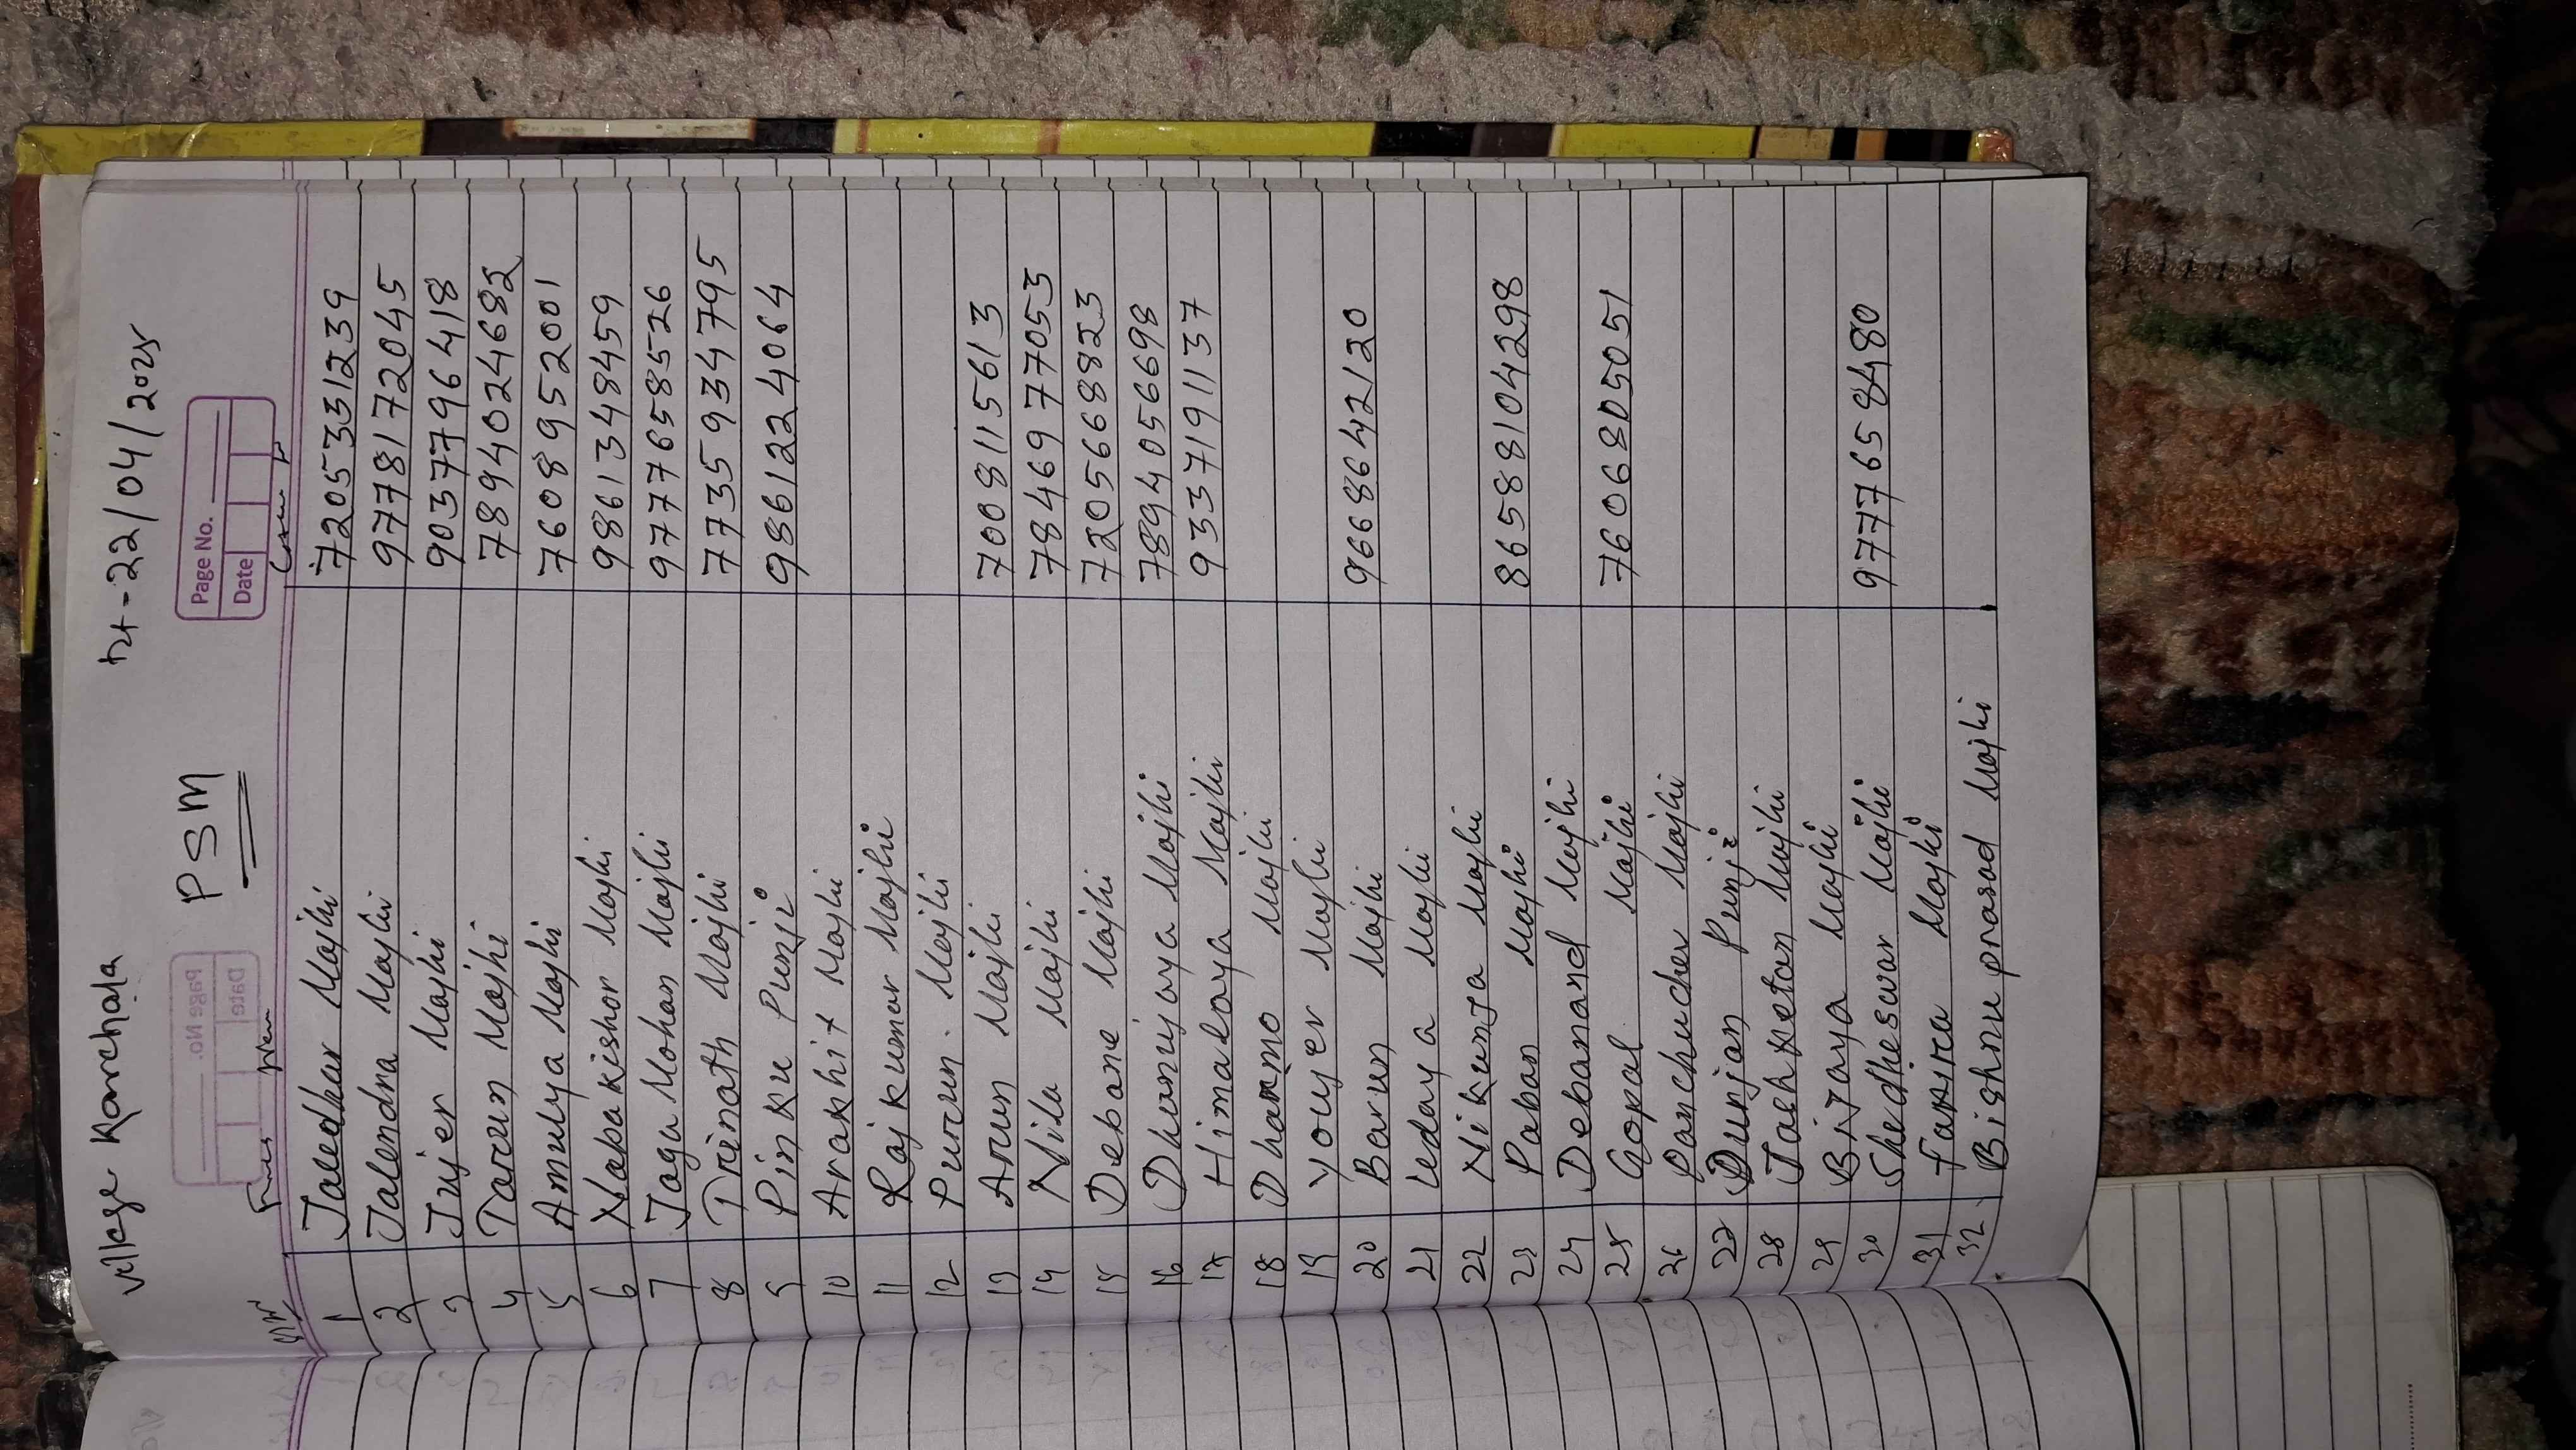 Village Karchala Dt-22/04/2025
PSM
Page No.
Date
1 Jaledhar Majhi 7205331239
2 Jalendra Majhi 9778172045
3 Jujer Majhi 9037796418
4 Tarun Majhi 7894024682
5 Amulya Majhi 7608952001
6 Nabakishor Majhi 9861348459
7 Jaga Mohan Majhi 9777658526
8 Trinath Majhi 7735934795
9 Pinku Punji 9861224064
10 Arakhit Majhi
11 Rajkumar Majhi
12 Purun Majhi
13 Arun Majhi 7008115613
14 Nila Majhi 7846977053
15 Debane Majhi 7205668823
16 Dhanijaya Majhi 7894056698
17 Himalaya Majhi 9337191137
18 Dharmo Majhi
19 Youyer Majhi
20 Barun Majhi 9668642120
21 Uedaya Majhi
22 Nikunja Majhi
23 Paban Majhi 8658104298
24 Debanand Majhi
25 Gopal Majhi 7606805051
26 Panchucher Majhi
27 Dunjan Punji
28 Jashketan Majhi
29 Bijaya Majhi
30 Shedheswar Majhi 9777658480
31 Fakira Majhi
32 Bishnu prasad Majhi